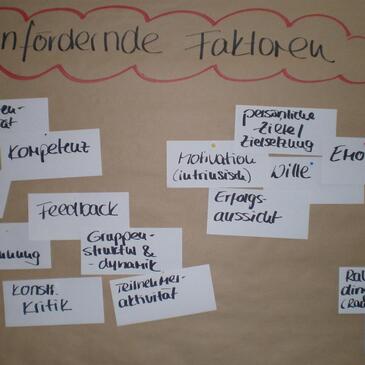 nfördernde Faktoren
en-
tät
Kompetenz
Feedback
nung
Gruppen-
struktur &
-dynamik
konstr.
Kritik
Teilnehmer-
aktivität
persönliche
Ziele/
Zielsetzung
Motivation
(intrinsisch)
Wille
Emo
Erfolgs-
aussicht
Ra
din
(Ra